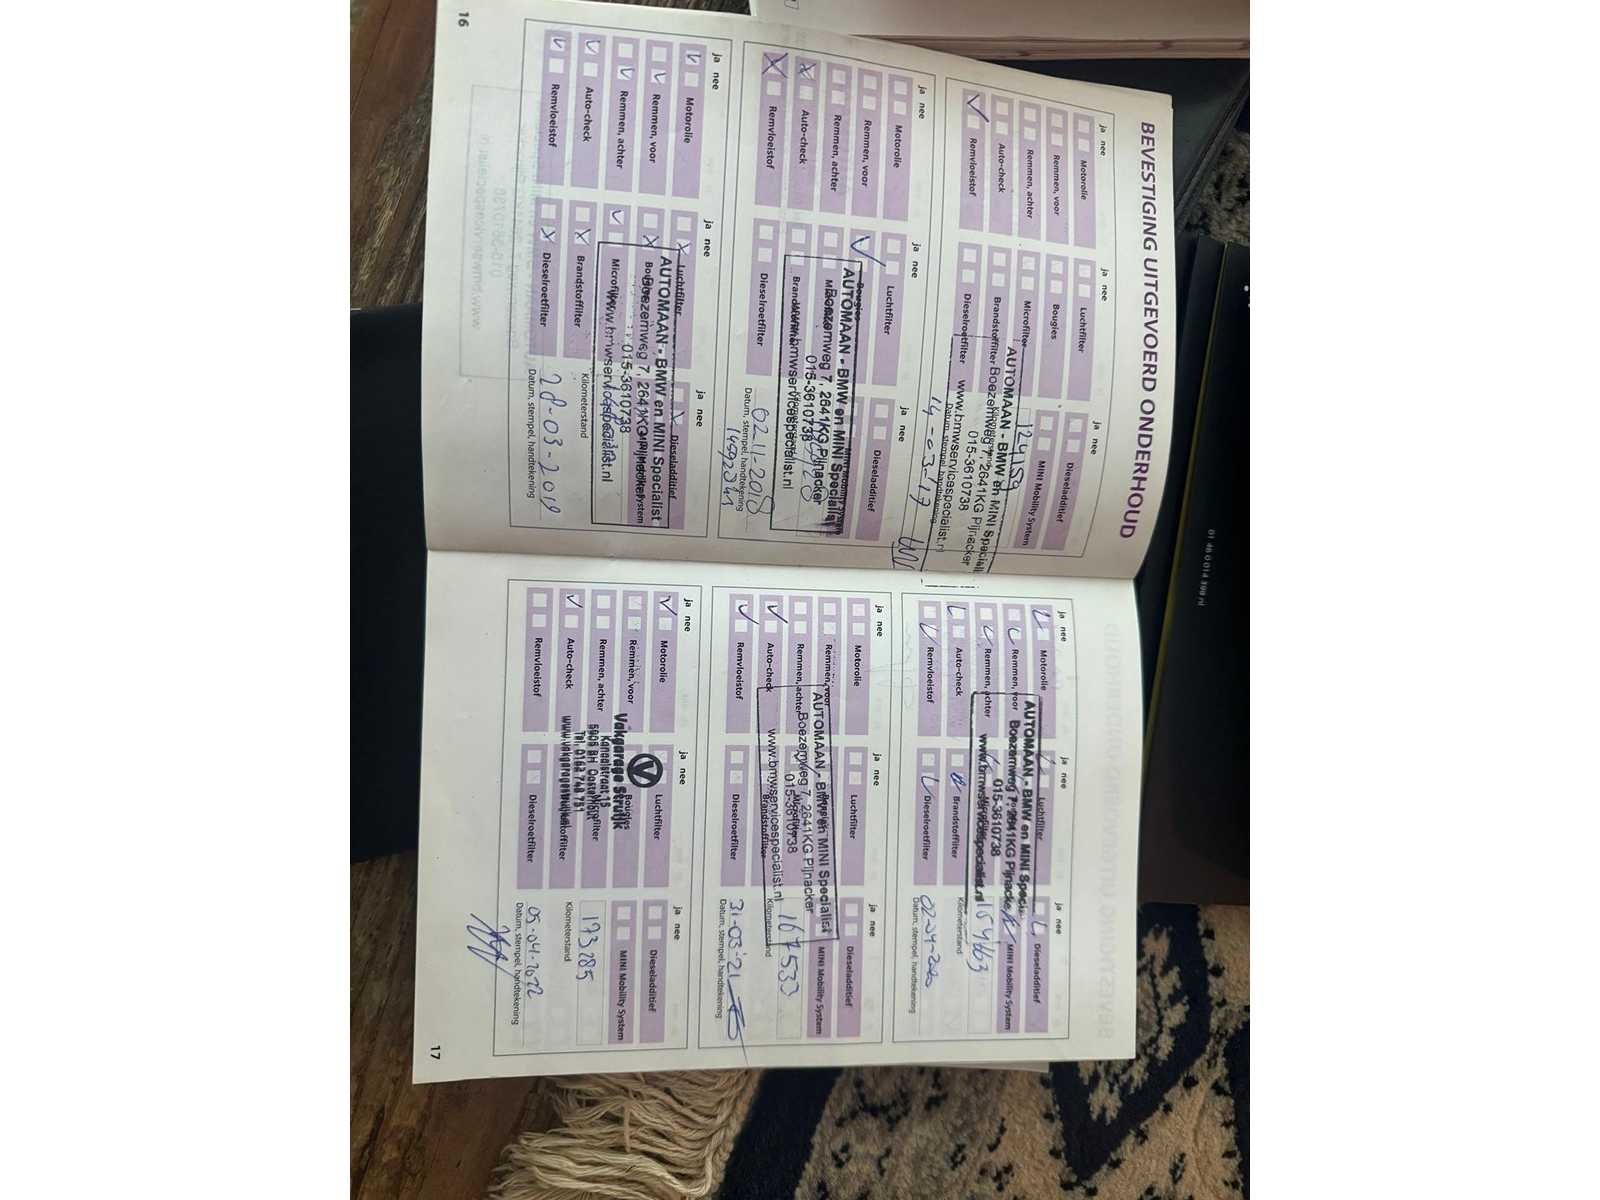 BEVESTIGING UITGEVOERD ONDERHOUD
ja nee
Motorolie
Remmen, voor
Remmen, achter
Auto-check
Remvloeistof
ja nee
Luchtfilter
Bougies
Microfilter
Brandstoffilter
Dieselroetfilter
ja nee
Dieseladditief
MINI Mobility System
124159
Datum, stempel, handtekening
14-03-17
AUTOMAAN - BMW en MINI Speciali
Boezemweg 7, 2641KG Pijnacker
015-3610738
www.bmwservicespecialist.nl
ja nee
Motorolie
Remmen, voor
Remmen, achter
Auto-check
Remvloeistof
ja nee
Luchtfilter
Bougies
Dieselroetfilter
ja nee
Dieseladditief
MINI Mobility System
Datum, stempel, handtekening
02-11-2018
AUTOMAAN - BMW en MINI Specialist
Boezemweg 7, 2641KG Pijnacker
015-3610738
www.bmwservicespecialist.nl
ja nee
Motorolie
Remmen, voor
Remmen, achter
Auto-check
Remvloeistof
ja nee
Luchtfilter
Bougies
Microfilter
Brandstoffilter
Dieselroetfilter
ja nee
Dieseladditief
Kilometerstand
Datum, stempel, handtekening
28-03-2019
AUTOMAAN - BMW en MINI Specialist
Boezemweg 7, 2641KG Pijnacker
015-3610738
www.bmwservicespecialist.nl
16
ja nee
Motorolie
Remmen, voor
Remmen, achter
Auto-check
Remvloeistof
ja nee
Luchtfilter
Brandstoffilter
Dieselroetfilter
Dieseladditief
MINI Mobility System
Kilometerstand
154663
Datum, stempel, handtekening
02-04-2020
AUTOMAAN - BMW en MINI Specia
Boezemweg 7, 2641KG Pijnacke
015-3610738
www.bmwservicespecialist.nl
ja nee
Motorolie
Remmen, voor
Remmen, achter
Auto-check
Remvloeistof
ja nee
Luchtfilter
Brandstoffilter
Dieselroetfilter
ja nee
Dieseladditief
MINI Mobility System
Kilometerstand
167533
Datum, stempel, handtekening
31-03-'21
AUTOMAAN - BMW en MINI Specialist
Boezemweg 7, 2641KG Pijnacker
015-3610738
www.bmwservicespecialist.nl
ja nee
Motorolie
Remmen, voor
Remmen, achter
Auto-check
Remvloeistof
ja nee
Luchtfilter
Bougies
Microfilter
Dieselroetfilter
ja nee
Dieseladditief
MINI Mobility System
Kilometerstand
173285
Datum, stempel, handtekening
05-04-2022
Vakgarage Struijk
Tel. 0162 748 751
17
01 46 0 014 398 nl